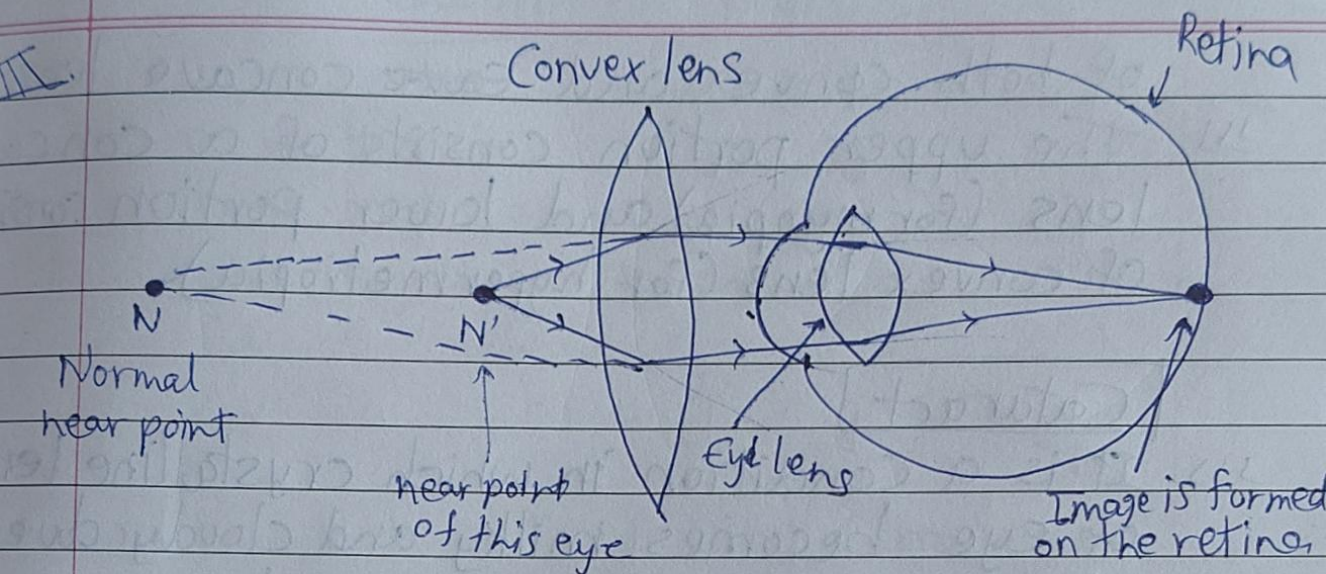 III.
Convex lens
Retina
N
N'
Normal
near point
near point
of this eye
Eye lens
Image is formed
on the retina